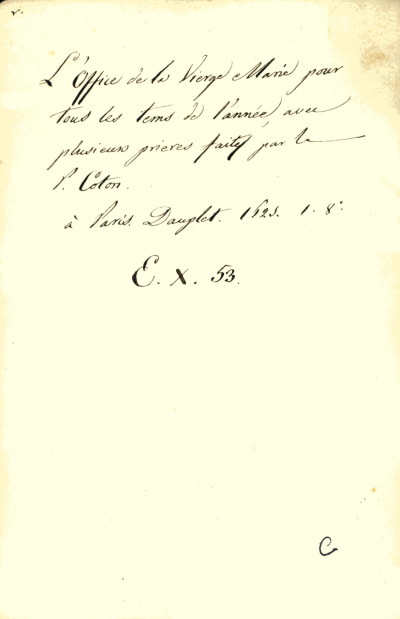 v.
L'Office de la Vierge Marie pour
tous les tems de l'année, avec
plusieurs prieres faites par le
P. Coton.
à Paris. Dauplet. 1625. 1. 8°.
E. X. 53.
C